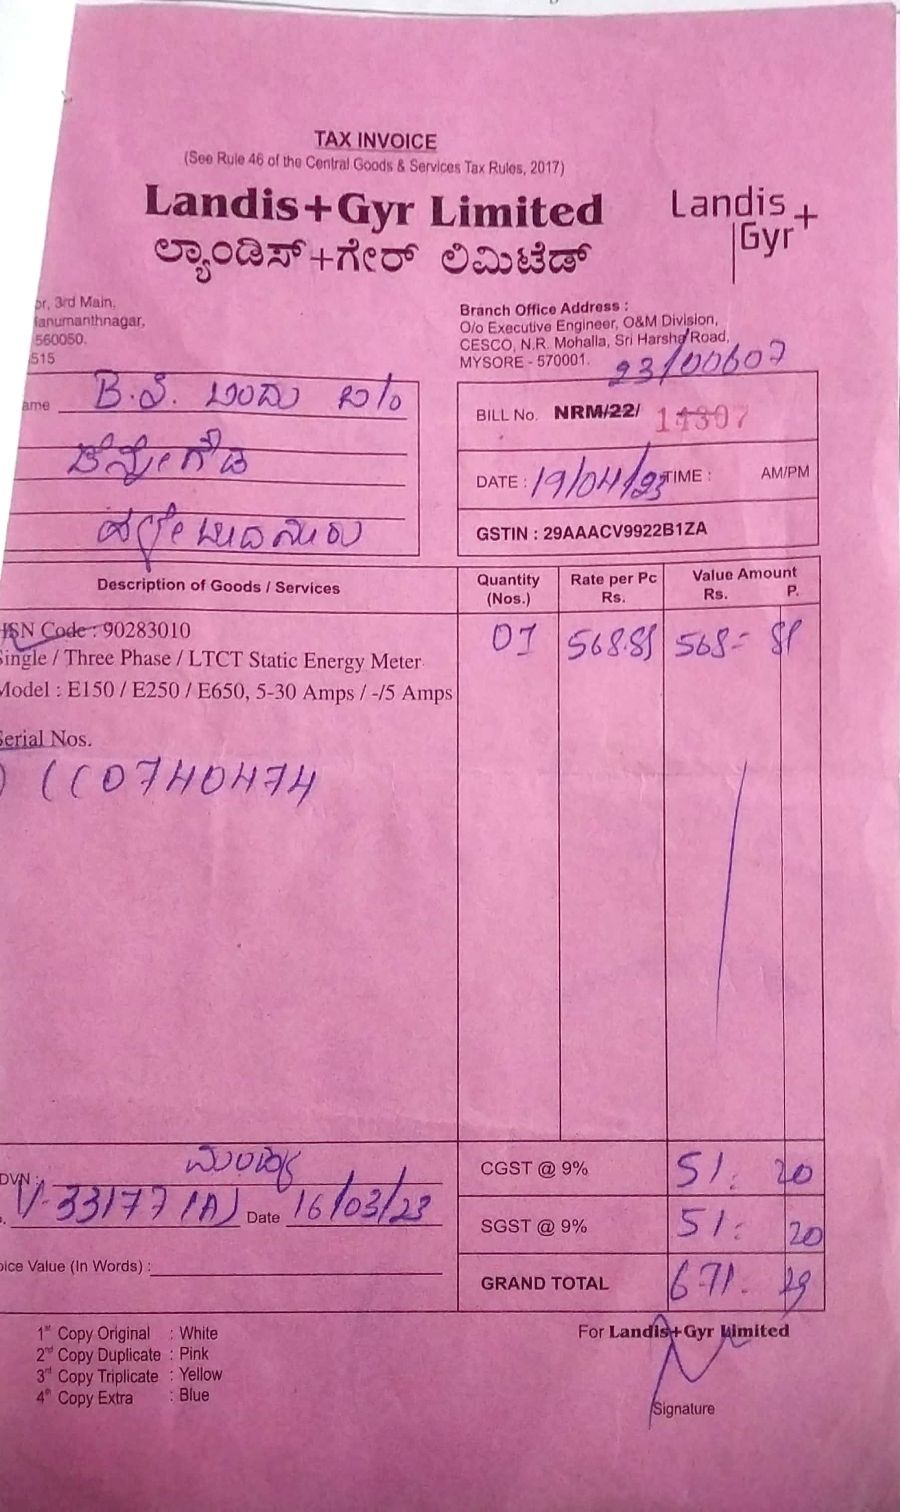 TAX INVOICE
(See Rule 46 of the Central Goods & Services Tax Rules, 2017)
Landis+Gyr Limited
ಲ್ಯಾಂಡಿಸ್+ಗೇರ್ ಲಿಮಿಟೆಡ್
Landis+
Gyr
or, 3rd Main,
anumanthnagar,
560050.
515
Branch Office Address :
O/o Executive Engineer, O&M Division,
CESCO, N.R. Mohalla, Sri Harsha Road,
MYSORE - 570001.
23/00607
ame
BILL No. NRM/22/ 14307
DATE : 19/04/23 TIME : AM/PM
GSTIN : 29AAACV9922B1ZA
Description of Goods / Services Quantity (Nos.) Rate per Pc Rs. Value Amount Rs. P.
HSN Code : 90283010
Single / Three Phase / LTCT Static Energy Meter 01 568.89 568=89
Model : E150 / E250 / E650, 5-30 Amps / -/5 Amps
Serial Nos.
CC0740474
DVN : ಮಂಡ್ಯ
V-33177(A) Date 16/03/23
CGST @ 9% 51. 20
SGST @ 9% 51. 20
oice Value (In Words) :
GRAND TOTAL 671. 29
1st Copy Original : White
2nd Copy Duplicate : Pink
3rd Copy Triplicate : Yellow
4th Copy Extra : Blue
For Landis+Gyr Limited
Signature